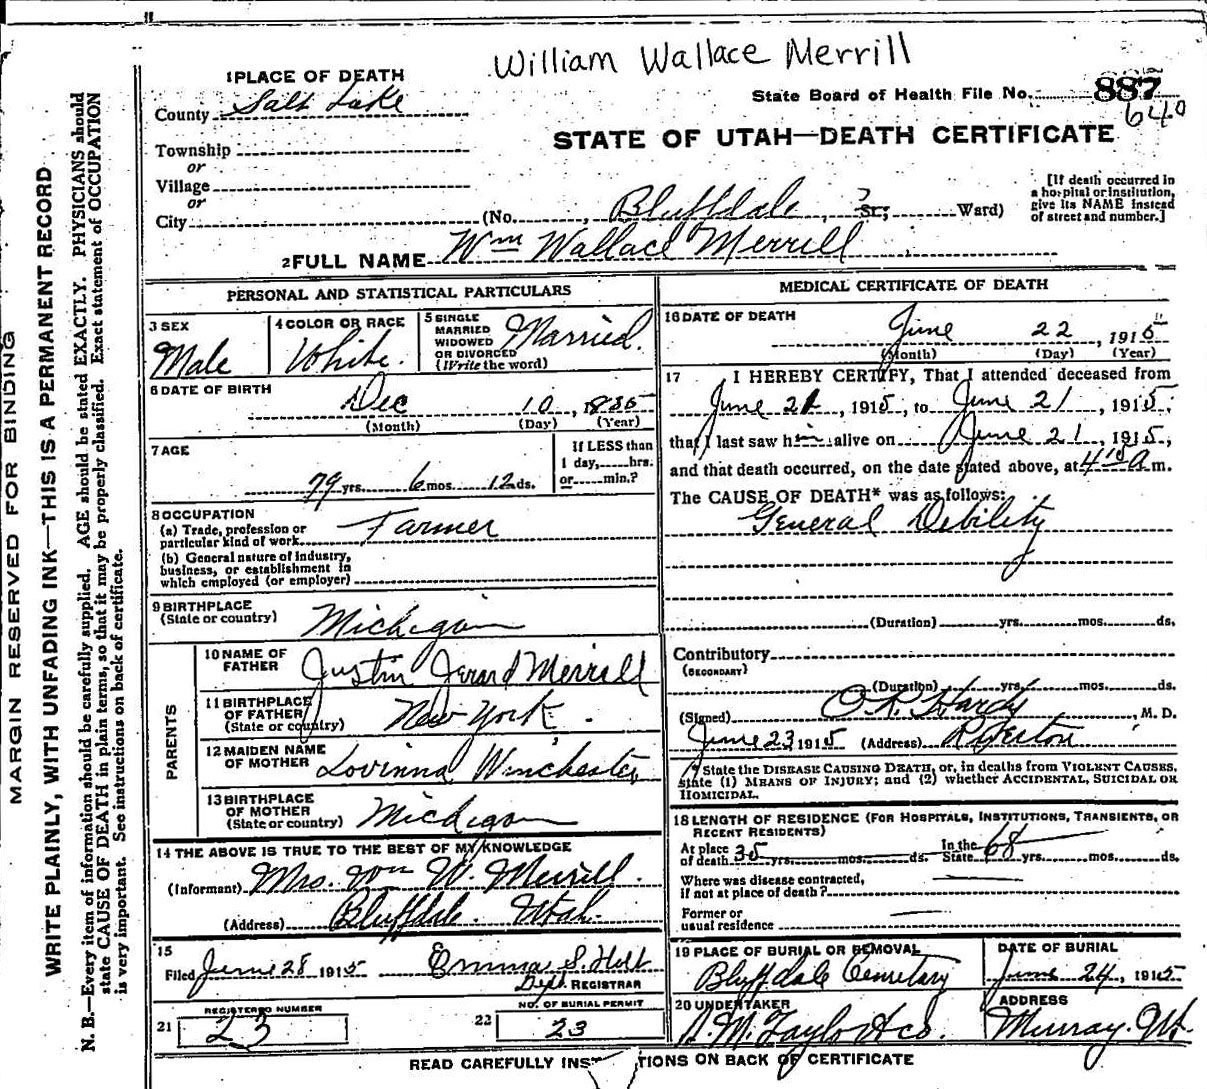 William Wallace Merrill
1 PLACE OF DEATH
County Salt Lake
State Board of Health File No. 887
640
STATE OF UTAH—DEATH CERTIFICATE
Township
or
Village
or
City (No. , Bluffdale , St; Ward)
[If death occurred in a hospital or institution, give its NAME instead of street and number.]
2 FULL NAME Wm Wallace Merrill
PERSONAL AND STATISTICAL PARTICULARS
3 SEX Male
4 COLOR OR RACE White.
5 SINGLE MARRIED WIDOWED OR DIVORCED (Write the word) Married.
6 DATE OF BIRTH
Dec 10, 1835
(Month) (Day) (Year)
7 AGE
79 yrs. 6 mos. 12 ds.
If LESS than 1 day, hrs. or min.?
8 OCCUPATION
(a) Trade, profession or particular kind of work Farmer
(b) General nature of industry, business, or establishment in which employed (or employer)
9 BIRTHPLACE
(State or country) Michigan
PARENTS
10 NAME OF FATHER Justin Jerard Merrill
11 BIRTHPLACE OF FATHER (State or country) New York.
12 MAIDEN NAME OF MOTHER Lovinna Winchester
13 BIRTHPLACE OF MOTHER (State or country) Michigan
14 THE ABOVE IS TRUE TO THE BEST OF MY KNOWLEDGE
(Informant) Mrs. Wm W. Merrill.
(Address) Bluffdale. Utah.
15
Filed June 28 1915 Emma S. Holt
Dept. REGISTRAR
21 REGISTERED NUMBER 23
22 NO. OF BURIAL PERMIT 23
MEDICAL CERTIFICATE OF DEATH
16 DATE OF DEATH June 22, 1915
(Month) (Day) (Year)
17 I HEREBY CERTIFY, That I attended deceased from
June 21, 1915, to June 21, 1915,
that I last saw him alive on June 21, 1915,
and that death occurred, on the date stated above, at 4 15 A m.
The CAUSE OF DEATH* was as follows:
General Debility
(Duration) yrs. mos. ds.
Contributory
(SECONDARY)
(Duration) yrs. mos. ds.
(Signed) O. R. Hardy, M. D.
June 23 1915 (Address) Riverton
* State the DISEASE CAUSING DEATH, or, in deaths from VIOLENT CAUSES, state (1) MEANS OF INJURY; and (2) whether ACCIDENTAL, SUICIDAL OR HOMICIDAL.
18 LENGTH OF RESIDENCE (FOR HOSPITALS, INSTITUTIONS, TRANSIENTS, OR RECENT RESIDENTS)
At place of death 35 yrs. mos. ds. In the State 68 yrs. mos. ds.
Where was disease contracted, if not at place of death?
Former or usual residence
19 PLACE OF BURIAL OR REMOVAL Bluffdale Cemetary
DATE OF BURIAL June 24, 1915
20 UNDERTAKER A. M. Taylor & Co.
ADDRESS Murray. Ut.
READ CAREFULLY INS TIONS ON BACK OF CERTIFICATE
MARGIN RESERVED FOR BINDING
WRITE PLAINLY, WITH UNFADING INK—THIS IS A PERMANENT RECORD
N. B.—Every item of information should be carefully supplied. AGE should be stated EXACTLY. PHYSICIANS should
state CAUSE OF DEATH in plain terms, so that it may be properly classified. Exact statement of OCCUPATION
is very important. See instructions on back of certificate.